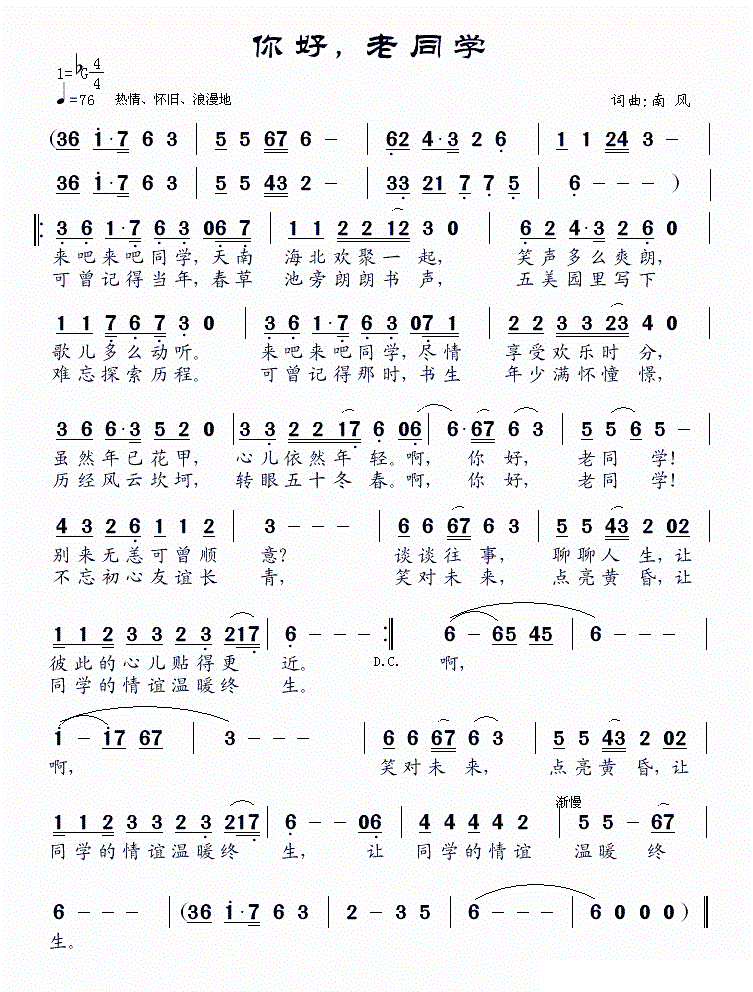 你好，老同学
1=♭G 4/4
♩=76 热情、怀旧、浪漫地 词曲:南 风
(36 i·7 6 3 | 5 5 67 6 – | 62 4·3 2 6 | 1 1 24 3 – |
36 i·7 6 3 | 5 5 43 2 – | 33 21 7 7 5 | 6 – – – )
‖: 3 6 1·7 6 3 06 7 | 1 1 2 2 12 3 0 | 6 2 4·3 2 6 0 |
来吧来吧同学,天南 海北欢聚一起, 笑声多么爽朗,
可曾记得当年,春草 池旁朗朗书声, 五美园里写下
1 1 7 6 7 3 0 | 3 6 1·7 6 3 07 1 | 2 2 3 3 23 4 0 |
歌儿多么动听。 来吧来吧同学,尽情 享受欢乐时分,
难忘探索历程。 可曾记得那时,书生 年少满怀憧憬,
3 6 6·3 5 2 0 | 3 3 2 2 17 6 06 | 6·67 6 3 | 5 5 6 5 – |
虽然年已花甲, 心儿依然年轻。啊, 你好, 老同学!
历经风云坎坷, 转眼五十冬春。啊, 你好, 老同学!
4 3 2 6 1 1 2 | 3 – – – | 6 6 67 6 3 | 5 5 43 2 02 |
别来无恙可曾顺 意? 谈谈往事, 聊聊人生,让
不忘初心友谊长 青, 笑对未来, 点亮黄昏,让
1 1 2 3 3 2 3 217 | 6 – – – :‖ 6 – 65 45 | 6 – – – |
彼此的心儿贴得更 近。 D.C. 啊,
同学的情谊温暖终 生。
i – i7 67 | 3 – – – | 6 6 67 6 3 | 5 5 43 2 02 |
啊, 笑对未来, 点亮黄昏,让
渐慢
1 1 2 3 3 2 3 217 | 6 – – 06 | 4 4 4 4 4 2 | 5 5 – 67 |
同学的情谊温暖终 生, 让 同学的情谊 温暖 终
6 – – – | (36 i·7 6 3 | 2 – 3 5 | 6 – – – | 6 0 0 0) ‖
生。